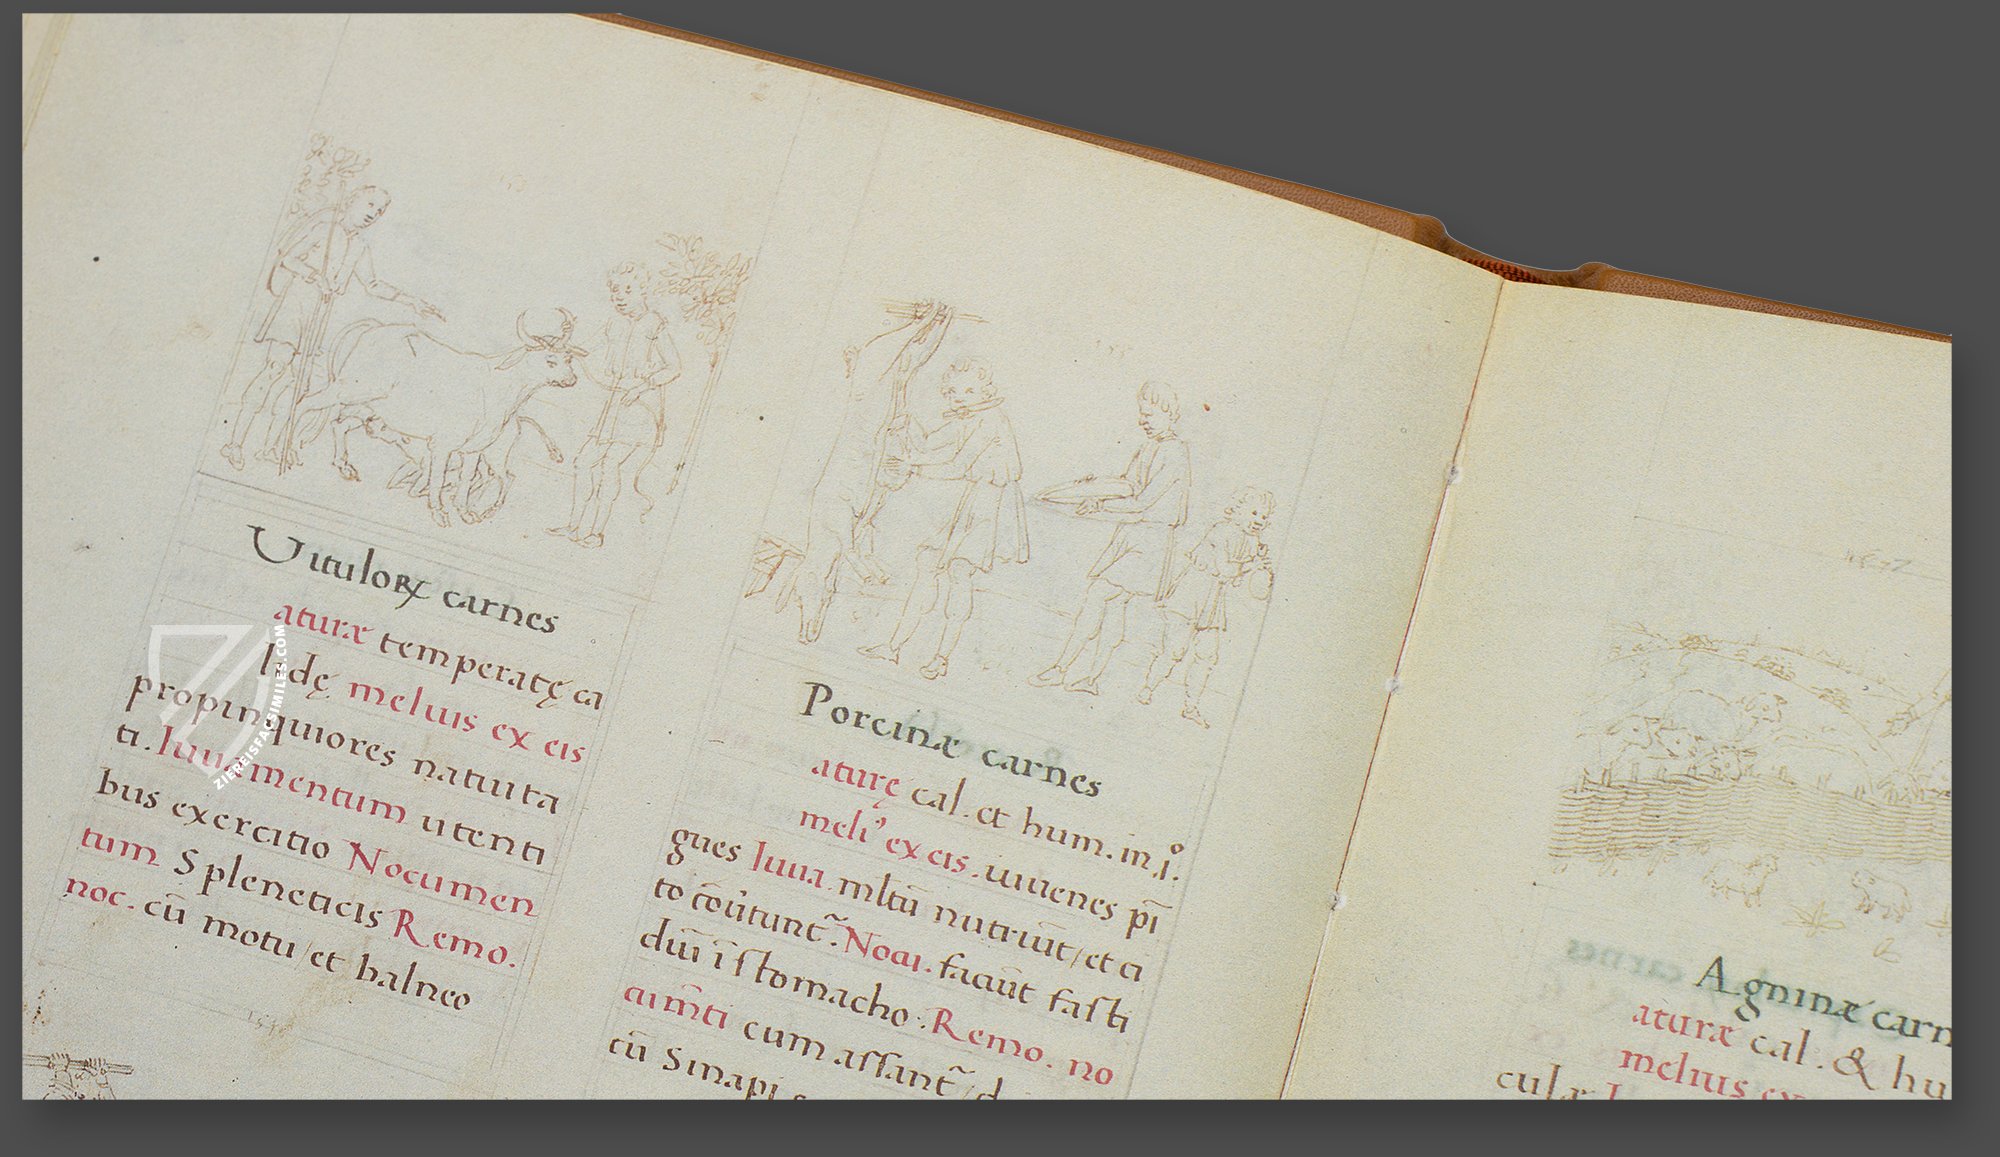 Uituloꝝ carnes
aturæ temperatę ca
lidę melius ex eis
propinquiores natiuita
ti. Iuuamentum utenti
bus exercitio Nocumen
tum Spleneticis Remo.
noc. cū motu / et balneo
Porcinæ carnes
aturę cal. et hum. in .i.º
meli⁹ ex eis. iuuenes pī
gues Iuua. mltū nutriūt / et ci
to
Nocu. faciūt fasti
diū ī stomacho: Remo. no
cum̄ti cum assant̃
cū Sinapi
Agninæ carn
aturæ cal. & hu
melius ex
culæ
ZIEREISFACSIMILES.COM